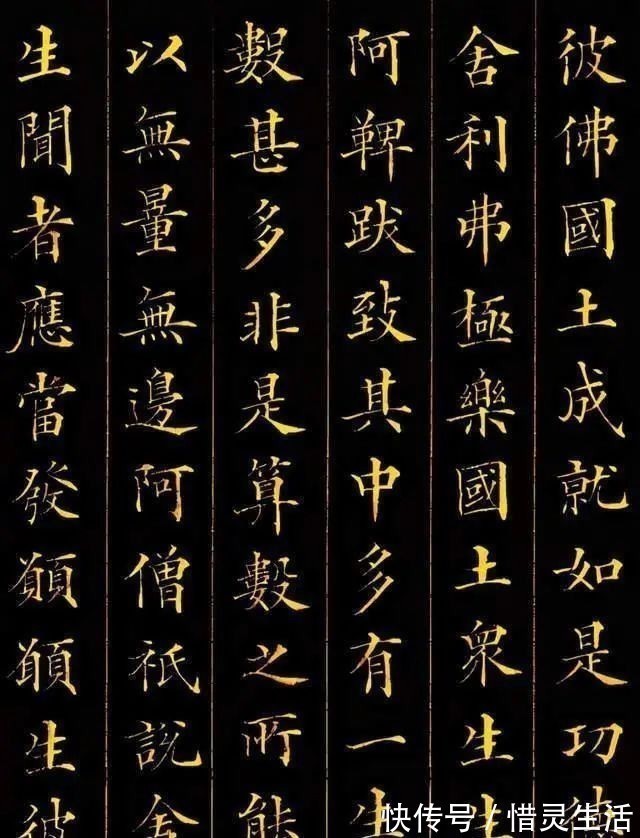 彼佛國土成就如是功
舍利弗極樂國土衆生生
阿鞞跋致其中多有一生
數甚多非是算數之所能
以無量無邊阿僧祇說舍
生聞者應當發願願生彼
快传号/惜灵生活